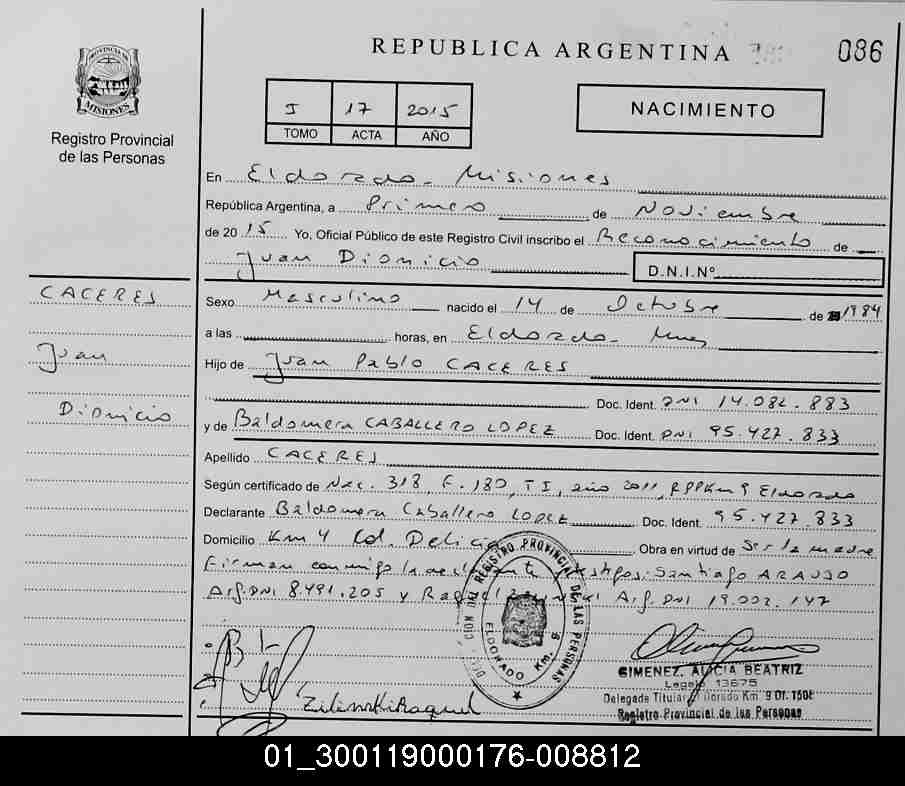 REPUBLICA ARGENTINA
086
PROVINCIA DE
MISIONES
Registro Provincial
de las Personas
I 17 2015
TOMO ACTA AÑO
NACIMIENTO
En Eldorado - Misiones
República Argentina, a Primero de Noviembre
de 2015 Yo, Oficial Público de este Registro Civil inscribo el Reconocimiento de
Juan Dionicio
D.N.I.Nº
CACERES
Juan
Dionicio
Sexo Masculino nacido el 14 de Octubre de 1984
a las horas, en Eldorado - Mnes
Hijo de Juan Pablo CACERES
Doc. Ident. DNI 14.082.883
y de Baldomera CABALLERO LOPEZ Doc. Ident. DNI 95.427.833
Apellido CACERES
Según certificado de Nac. 318, F. 180, T I, año 2011, RPPKm 9 Eldorado
Declarante Baldomera Caballero LOPEZ Doc. Ident. 95.427.833
Domicilio Km 4 Col. Delicia Obra en virtud de Ser la madre
Firman conmigo la testigos: Santiago ARAUJO
Arg. DNI 8.491.205 y Raquel Arg. DNI 19.002.147
DEL REGISTRO PROVINCIAL DE LAS PERSONAS
ELDORADO Km. 9
GIMENEZ, ALICIA BEATRIZ
Legajo 13675
Delegada Titular Eldorado Km 9 Of. 1508
Registro Provincial de las Personas
Zilinski Raquel
01_300119000176-008812